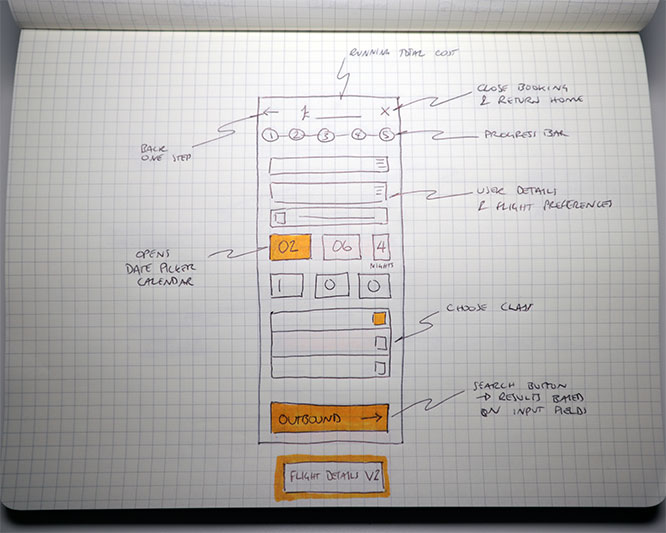 RUNNING TOTAL COST
CLOSE BOOKING
& RETURN HOME
← £ ×
1 2 3 4 5
PROGRESS BAR
BACK
ONE STEP
USER DETAILS
& FLIGHT PREFERENCES
02 06 4
NIGHTS
OPENS
DATE PICKER
CALENDAR
1 0 0
CHOOSE CLASS
SEARCH BUTTON
→ RESULTS BASED
ON INPUT FIELDS
OUTBOUND →
FLIGHT DETAILS V2